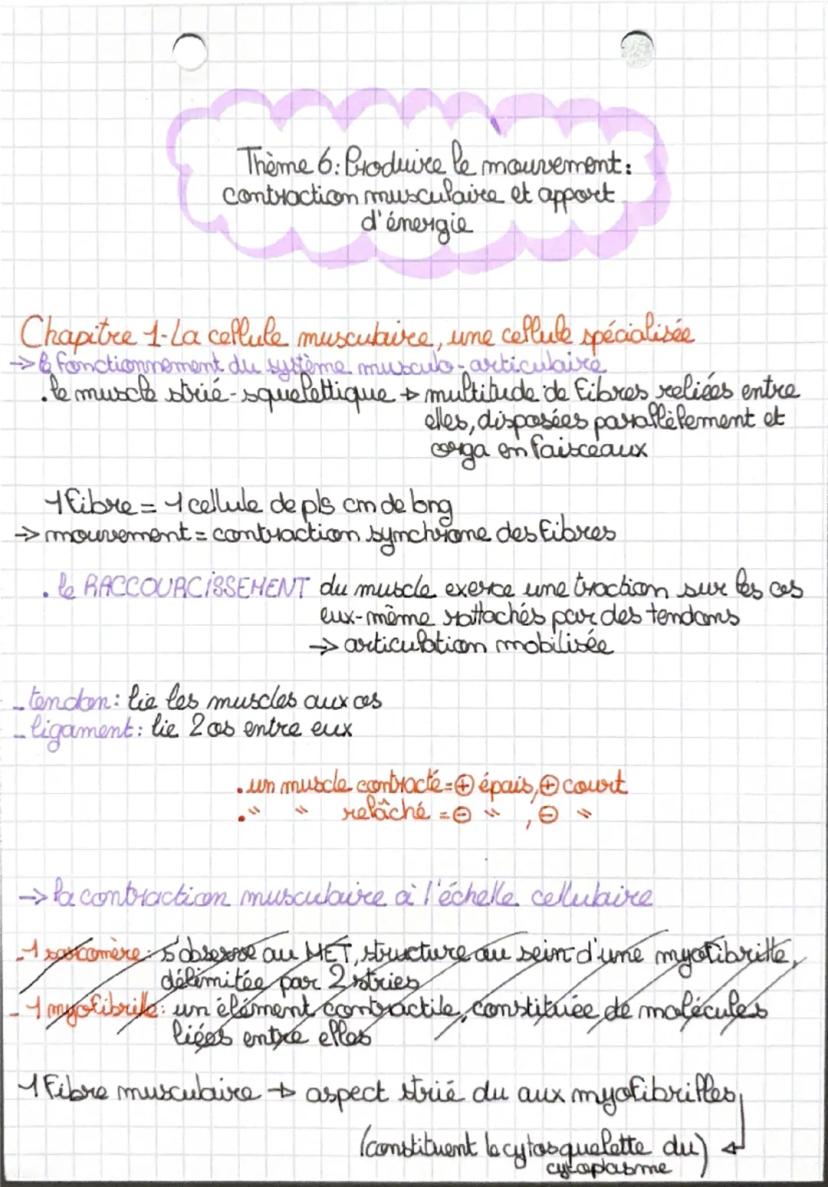 Thème 6: Produire le mouvement:
contraction musculaire et apport
d'énergie
Chapitre 1-La cellule musculaire, une cellule spécialisée
→ le fonctionnement du système musculo-articulaire
. le muscle strié-squelettique → multitude de fibres reliées entre
elles, disposées parallèlement et
orga en faisceaux
1 fibre = 1 cellule de pls cm de long
→ mouvement = contraction synchrone des fibres
. le RACCOURCISSEMENT du muscle exerce une traction sur les os
eux-même rattachés par des tendons
→ articulation mobilisée
- tendon: lie les muscles aux os
- ligament: lie 2 os entre eux
. un muscle contracté = ⊕ épais, ⊕ court
. " " relâché = ⊖ " , ⊖ "
→ la contraction musculaire à l'échelle cellulaire
- 1 sarcomère: s'observe au MET, structure au sein d'une myofibrille,
délimitée par 2 stries
- 1 myofibrille: un élément contractile, constituée de molécules
liées entre elles
1 fibre musculaire → aspect strié du aux myofibrilles
(constituent le cytosquelette du)
cytoplasme